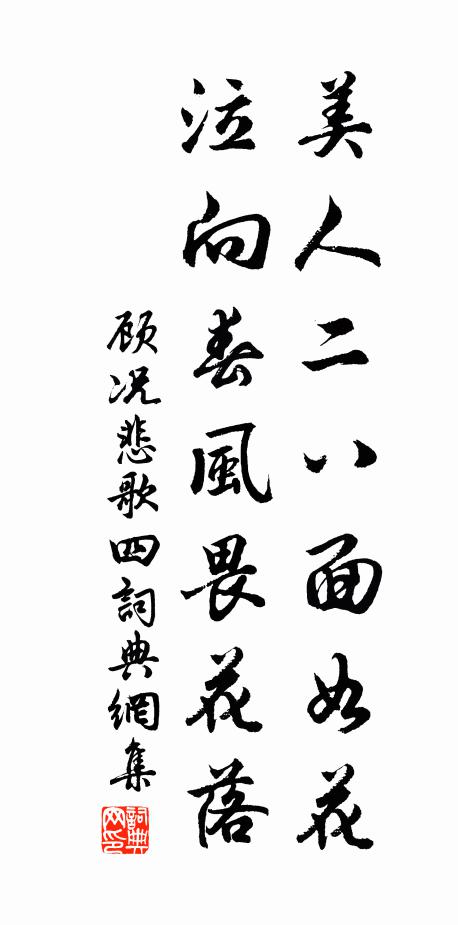 美人二八面如花
泣向春風畏花落
顧况悲歌四詞典網集
詞典網印